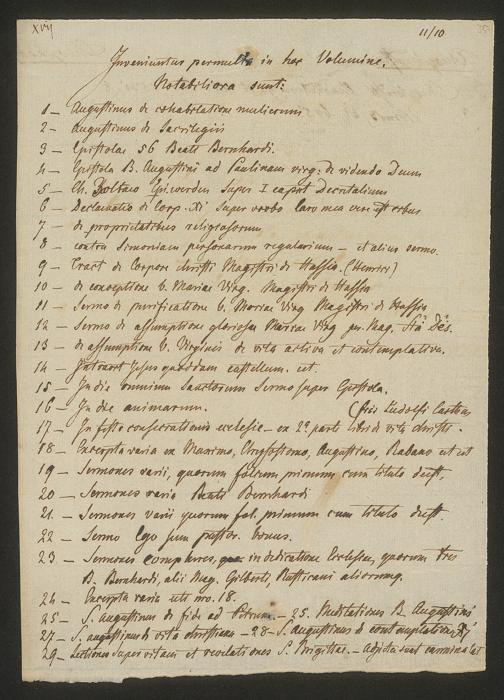 XVIJ
11/10
Inveniuntur permulta in hoc Volumine.
Notabiliora sunt:
1 — Augustinus de cohabitatione mulierum
2 — Augustinus de Sacrilegiis
3 — Epistolae 56 Beati Bernhardi.
4 — Epistola B. Augustini ad Paulinam virg: de videndo Deum
5 — Super I caput Decretalium
6 — Declaratio d. Corp. Xi super verbo Caro mea vere est cibus
7 — de proprietatibus religiosorum
8 — contra Simoniam personarum regularium — et alius sermo.
9 — Tract de Corpore christi Magistri de Hassia. (Henrici)
10 — de conceptione b. Mariae Virg. Magistri de Hassia
11 — Sermo de purificatione b. Mariae Virg Magistri de Hassia
12 — Sermo de assumptione gloriosae Mariae Virg per Mag.
13 — de assumptione b. Virginis de vita activa et contemplativa.
14 — Intravit Jesus quoddam castellum. cet.
15 — In die omnium Sanctorum Sermo super Epistola.
16 — In die animarum.
17 — In festo consecrationis ecclesie — ex 2ª parte libri de vita christi. (fris Ludolfi Cartus
18 — Excerpta varia ex Maximo, Chrysostomo, Augustino, Rabano cet cet
19 — Sermones varii, quorum folium primum cum titulo deest.
20 — Sermones varii Beati Bernhardi
21. — Sermones varii quorum fol. primum cum titulo deest.
22 — Sermo Ego sum pastor bonus.
23 — Sermones complures, in dedicatione Ecclesiae, quorum tres
B. Bernhardi, alii Mag. Gilberti, aliorumq.
24 — Excerpta varia uti nro. 18.
25 — S. Augustinus de fide ad Petrum. — 25. Meditationes B. Augustini
27 — S. augustinus de vita christiana — 28 — S. Augustinus de contemplatione
29 — Lectiones super vitam et revelationes S. Brigittae. — adjecta sunt carmina